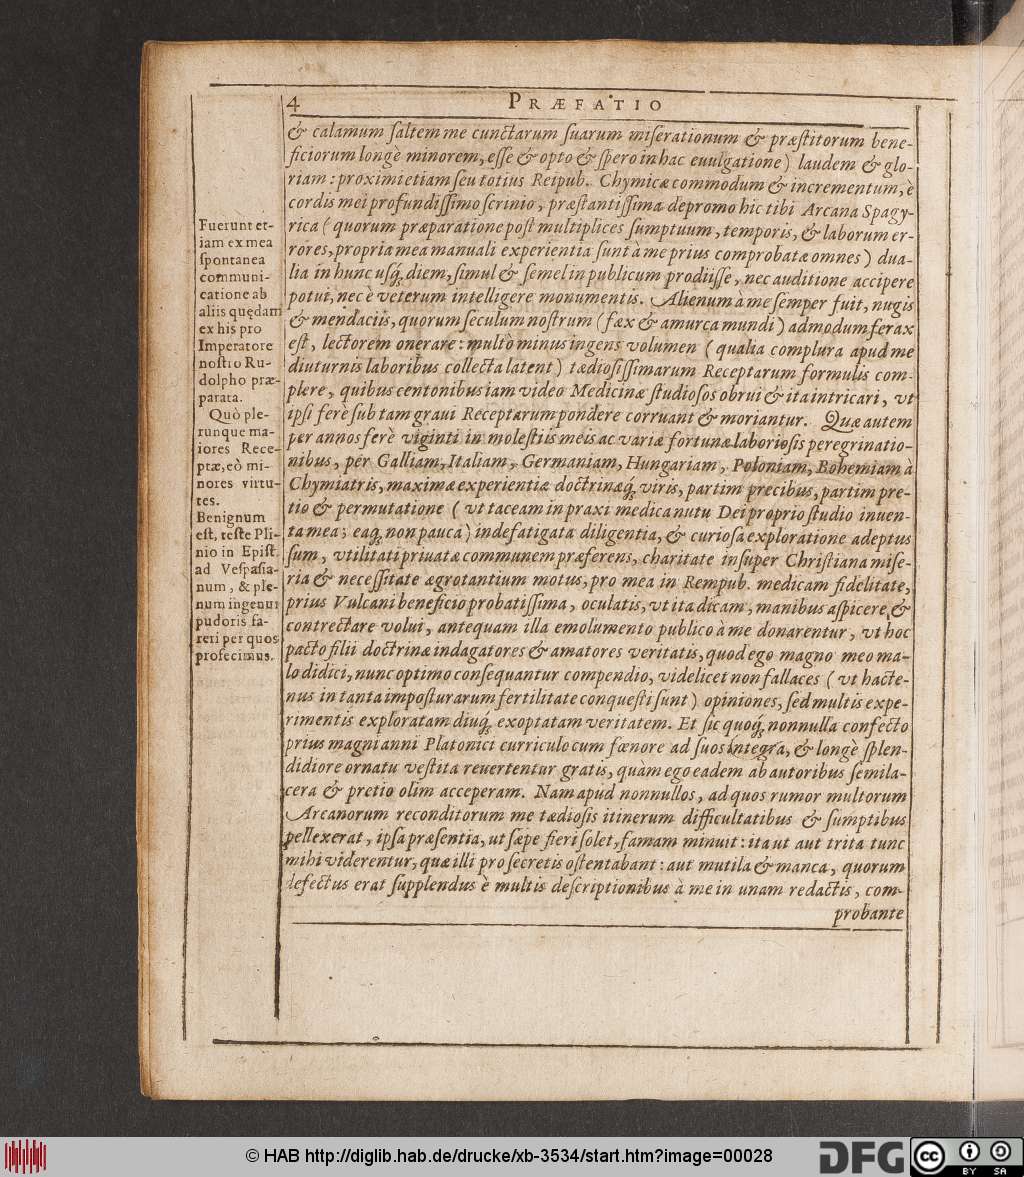 4
PRÆFATIO
& calamum ſaltem me cunctarum ſuarum miſerationum & præſtitorum bene-
ficiorum longè minorem, eſſe & opto & ſpero in hac euulgatione) laudem & glo-
riam: proximi etiam ſeu totius Reipub. Chymicæ commodum & incrementum, è
cordis mei profundiſſimo ſcrinio, præſtantiſſima depromo hic tibi Arcana Spagy-
rica (quorum præparatione poſt multiplices ſumptuum, temporis, & laborum er-
rores, propria mea manuali experientia ſunt à me prius comprobatæ omnes) dua-
lia in hunc uſq́; diem, ſimul & ſemel in publicum prodiiſſe, nec auditione accipere
potui, nec è veterum intelligere monumentis. Alienum à me ſemper fuit, nugis
& mendaciis, quorum ſeculum noſtrum (fæx & amurca mundi) admodum ferax
eſt, lectorem onerare: multò minus ingens volumen (qualia complura apud me
diuturnis laboribus collecta latent) tædioſiſſimarum Receptarum formulis com-
plere, quibus centonibus iam video Medicinæ ſtudioſos obrui & ita intricari, vt
ipſi ferè ſub tam graui Receptarum pondere corruant & moriantur. Quæ autem
per annos ferè viginti in moleſtiis meis ac variæ fortunæ laborioſis peregrinatio-
nibus, per Galliam, Italiam, Germaniam, Hungariam, Poloniam, Bohemiam à
Chymiatris, maximæ experientiæ doctrinæq́; viris, partim precibus, partim pre-
tio & permutatione (vt taceam in praxi medica nutu Dei proprio ſtudio inuen-
ta mea; eaq́; non pauca) indefatigata diligentia, & curioſa exploratione adeptus
ſum, vtilitati priuatæ communem præferens, charitate inſuper Chriſtiana miſe-
ria & neceſſitate ægrotantium motus, pro mea in Rempub. medicam fidelitate,
prius Vulcani beneficio probatiſſima, oculatis, vt ita dicam, manibus aſpicere, &
contrectare volui, antequam illa emolumento publico à me donarentur, vt hoc
pacto filii doctrinæ indagatores & amatores veritatis, quod ego magno meo ma-
lo didici, nunc optimo conſequantur compendio, videlicet non fallaces (vt hacte-
nus in tanta impoſturarum fertilitate conqueſti ſunt) opiniones, ſed multis expe-
rimentis exploratam diuq́; exoptatam veritatem. Et ſic quoq́; nonnulla confecto
prius magni anni Platonici curriculo cum fœnore ad ſuos integra, & longè ſplen-
didiore ornatu veſtita reuertentur gratis, quàm ego eadem ab autoribus ſemila-
cera & pretio olim acceperam. Nam apud nonnullos, ad quos rumor multorum
Arcanorum reconditorum me tædioſis itinerum difficultatibus & ſumptibus
pellexerat, ipſa præſentia, ut ſæpe fieri ſolet, famam minuit: ita ut aut trita tunc
mihi viderentur, quæ illi pro ſecretis oſtentabant: aut mutila & manca, quorum
defectus erat ſupplendus è multis deſcriptionibus à me in unam redactis, com-
probante
Fuerunt et-
iam ex mea
ſpontanea
communi-
catione ab
aliis quędam
ex his pro
Imperatore
noſtro Ru-
dolpho præ-
parata.
Quò ple-
runque ma-
iores Rece-
ptæ, eò mi-
nores virtu-
tes.
Benignum
eſt, teſte Pli-
nio in Epiſt.
ad Veſpaſia-
num, & ple-
num ingenui
pudoris fa-
teri per quos
profecimus.
© HAB http://diglib.hab.de/drucke/xb-3534/start.htm?image=00028
DFG
cc
BY SA